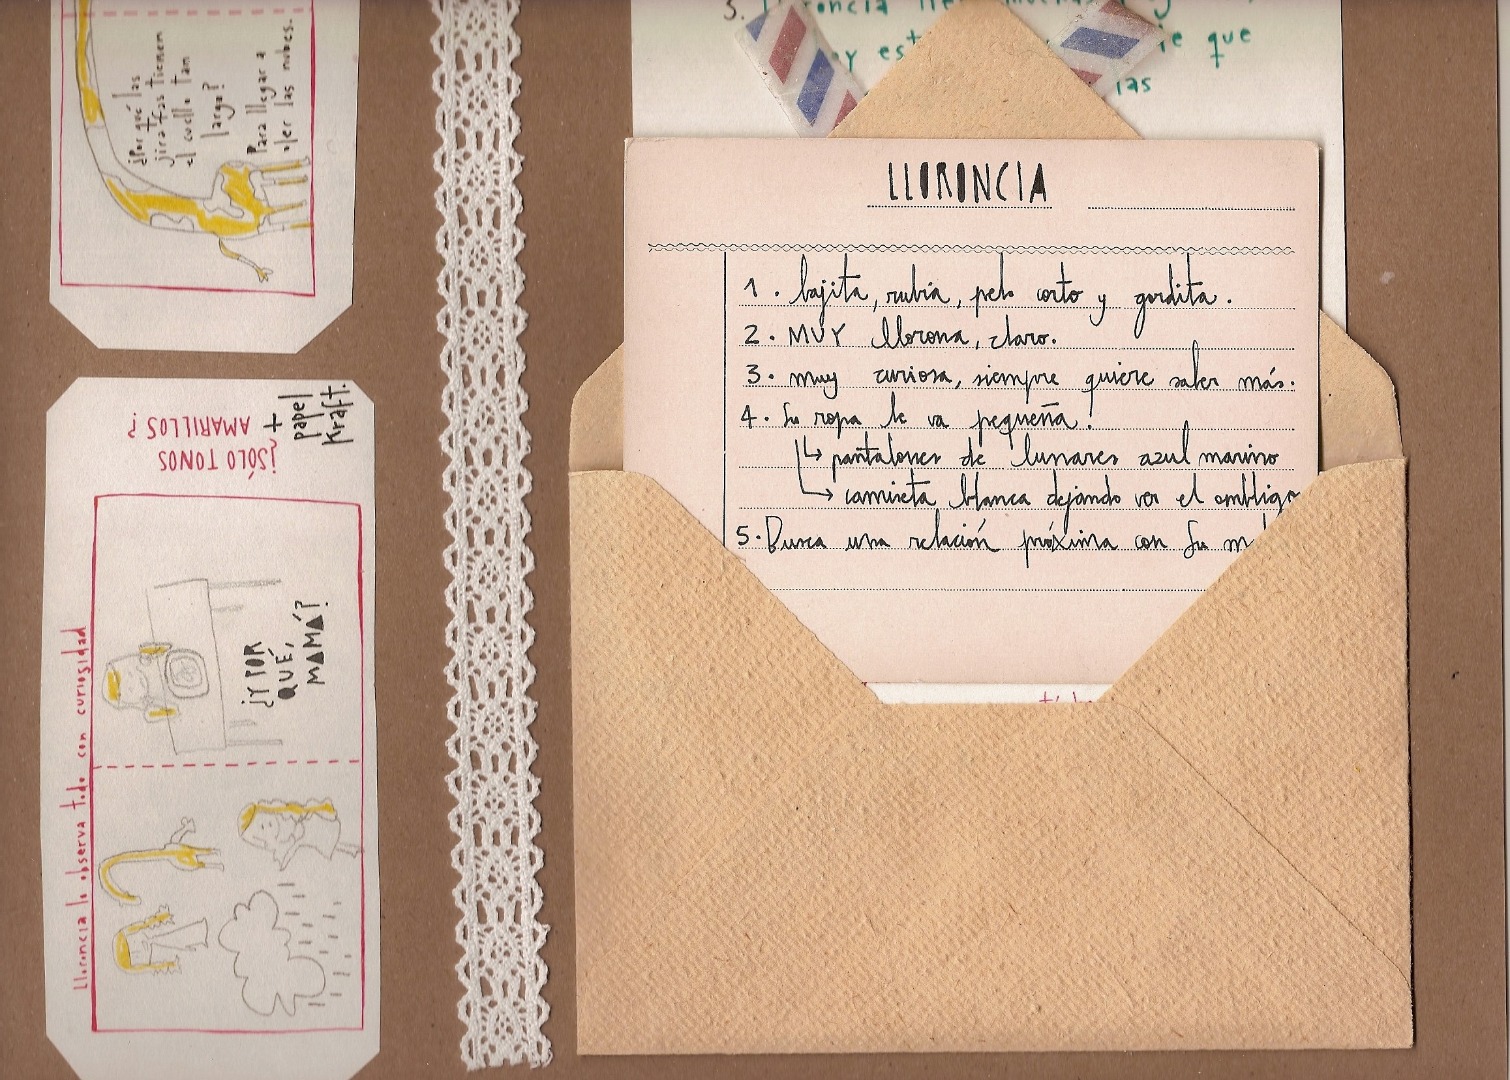 ¿Por qué las
jirafas tienen
el cuello tan
largo?
Para llegar a
oler las nubes.
¿SÓLO TONOS
AMARILLOS?
+
papel
kraft.
Llorencia lo observa todo con curiosidad
¿Y POR
QUÉ,
MAMÁ?
3.
que
LLORENCIA
1. bajita, rubia, pelo corto y gordita.
2. MUY llorona, claro.
3. muy curiosa, siempre quiere saber más.
4. Su ropa le va pequeña!
↳ pantalones de lunares azul marino
↳ camiseta blanca dejando ver el ombligo
5. Busca una relación próxima con su